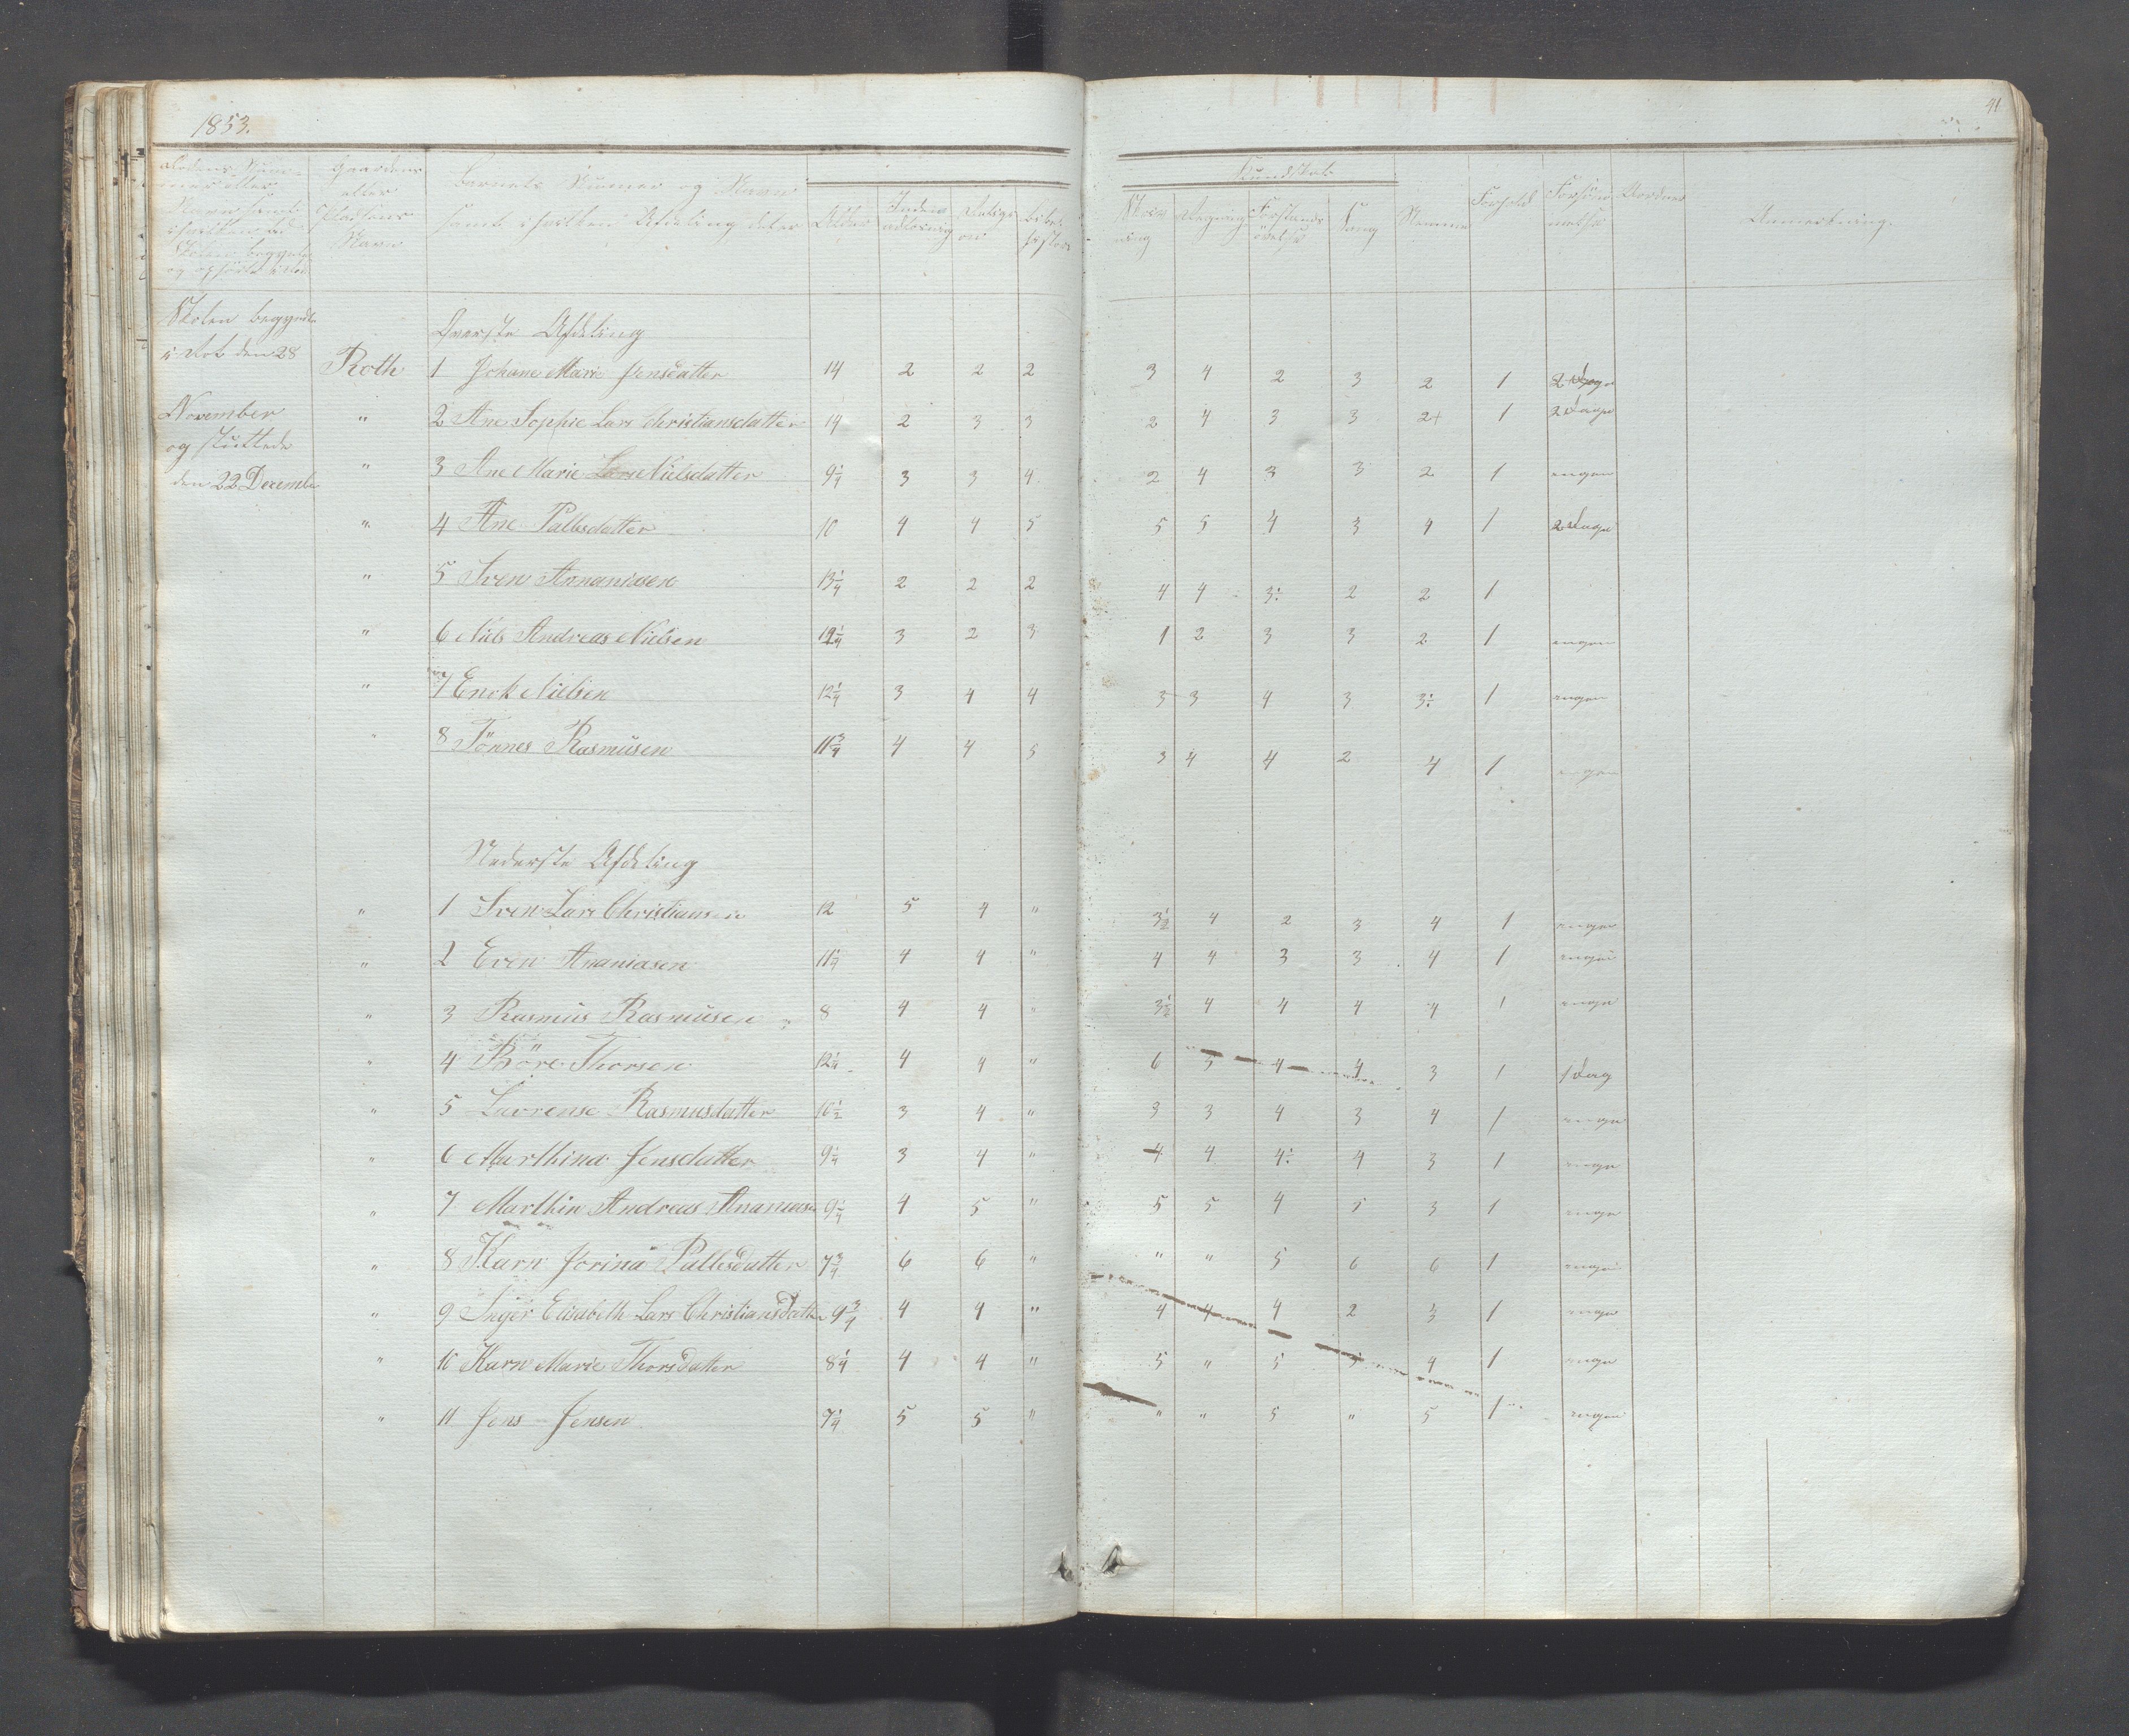 1853.
41
Rodens Num-
mer eller
Navn samt
Skolen begynder
og
Gaardens
eller
Pladsens
Navn
Barnets Nummer og Navn
samt i hvilken Afdeling det er
Alder
Inden-
adlæsning
Religi-
on
Bibel-
histor.
Kundskab
Skriv-
ning
Regning
Forstands-
øvelse
Sang
Nemme
Forhold
Forsøm-
melse
Anmerkning.
Skolen begyndte
i Rot den 28
November
og sluttede
den 22 December
Øverste Afdeling
Roth 1 Johane Marie Jensdatter 14 2 2 2 3 4 2 3 2 1 2 Dage
" 2 Ane Sophie Lars Christiansdatter 14 2 3 3 2 4 3 3 2+ 1 2 Dage
" 3 Ane Marie Lars Nielsdatter 9 1/4 3 3 4 2 4 3 3 2 1 ingen
" 4 Ane Pallesdatter 10 4 4 5 5 5 4 3 4 1 2 Dage
" 5 Sven Annaniasen 13 1/4 2 2 2 4 4 3: 2 2 1
" 6 Niels Andreas Nielsen 12 1/4 3 2 3 1 2 3 3 2 1 ingen
" 7 Enok Nielsen 12 1/4 3 4 4 3 3 4 3 3: 1 ingen
" 8 Tönnes Rasmusen 11 3/4 4 4 5 3 4 4 2 4 1 ingen
Nederste Afdeling
" 1 Sven Lars Christiansen 12 5 4 " 3 1/2 4 2 3 4 1 ingen
" 2 Even Ananiasen 11 1/4 4 4 " 4 4 3 3 4 1 ingen
" 3 Rasmus Rasmusen 8 4 4 " 3 1/2 4 4 4 4 1 ingen
" 4 Böre Thorsen 12 1/4 4 4 " 6 5 4 4 3 1 1 Dag
" 5 Lavrense Rasmusdatter 10 1/2 3 4 " 3 3 4 3 4 1 ingen
" 6 Marthina Jensdatter 9 1/4 3 4 " 4 4 4: 4 3 1 ingen
" 7 Marthin Andreas Ananiasen 9 1/4 4 5 " 5 5 4 5 3 1 ingen
" 8 Karn Jorina Pallesdatter 7 3/4 6 6 " " " 5 6 6 1 ingen
" 9 Inger Elisabeth Lars Christiansdatter 9 3/4 4 4 " 4 4 4 2 3 1 ingen
" 10 Karn Marie Thorsdatter 8 1/4 4 4 " 5 " 5 5 4 1 ingen
" 11 Jens Jensen 7 1/4 5 5 " " " 5 " 5 1 ingen